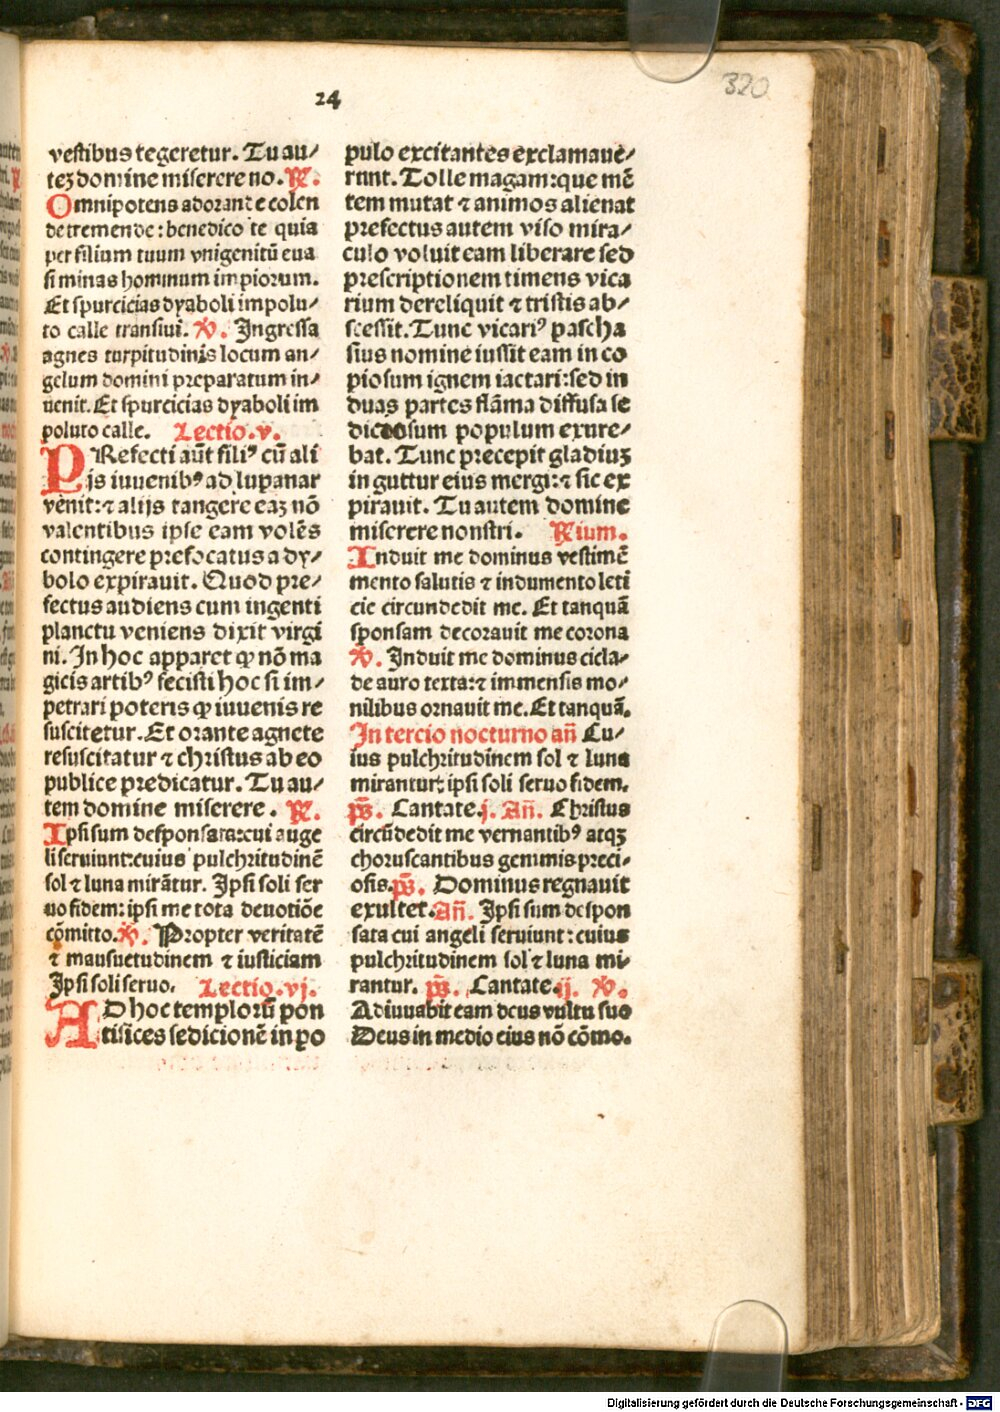 24
320
vestibus tegeretur. Tu au/
teʒ domine miserere no. ℟.
Omnipotens adorande colen
de tremende: benedico te quia
per filium tuum vnigenitū eua
si minas hominum impiorum.
Et spurcicias dyaboli impolu/
to calle transiui. ℣. Ingressa
agnes turpitudinis locum an/
gelum domini preparatum in/
uenit. Et spurcicias dyaboli im
poluto calle. Lectio.v.
PRefecti aūt filiꝰ cū ali
is iuuenibꝰ ad lupanar
venit: ⁊ alijs tangere eaʒ nō
valentibus ipse eam volēs
contingere prefocatus a dy/
bolo expirauit. Quod pre/
fectus audiens cum ingenti
planctu veniens dixit virgi
ni. In hoc apparet ꝙ nō ma
gicis artibꝰ fecisti hoc si im/
petrari poteris ꝙ iuuenis re
suscitetur. Et orante agnete
resuscitatur ⁊ christus ab eo
publice predicatur. Tu au/
tem domine miserere. ℟.
Ipsi sum desponsata: cui ange
li seruiunt: cuius pulchritudinē
sol ⁊ luna mirātur. Ipsi soli ser
uo fidem: ipsi me tota deuotiōe
cōmitto. ℣. Propter veritatē
⁊ mansuetudinem ⁊ iusticiam
Ipsi soli seruo. Lectio.vj.
AD hoc templorū pon
tifices sedicionē in po
pulo excitantes exclamaue/
runt. Tolle magam: que mē
tem mutat ⁊ animos alienat
prefectus autem viso mira/
culo voluit eam liberare sed
prescriptionem timens vica
rium dereliquit ⁊ tristis ab/
scessit. Tunc vicariꝰ pascha
sius nomine iussit eam in co
piosum ignem iactari: sed in
duas partes flāma diffusa se
diciosum populum exure/
bat. Tunc precepit gladiuʒ
in guttur eius mergi: ⁊ sic ex
pirauit. Tu autem domine
miserere nonstri. ℟ium.
Induit me dominus vestimē
mento salutis ⁊ indumento leti
cie circundedit me. Et tanquā
sponsam decorauit me corona
℣. Induit me dominus cicla/
de auro texta: ⁊ immensis mo/
nilibus ornauit me. Et tanquā.
In tercio nocturno añ Cu/
ius pulchritudinem sol ⁊ luna
mirantur: ipsi soli seruo fidem.
p̄s. Cantate.j. Añ. Christus
circūdedit me vernantibꝰ atqʒ
choruscantibus gemmis preci/
osis. p̄s. Dominus regnauit
exultet. Añ. Ipsi sum despon
sata cui angeli seruiunt: cuius
pulchritudinem sol ⁊ luna mi/
rantur. p̄s. Cantate.ij. ℣.
Adiuuabit eam deus vultu suo
Deus in medio eius nō cōmo.
Digitalisierung gefördert durch die Deutsche Forschungsgemeinschaft - DFG